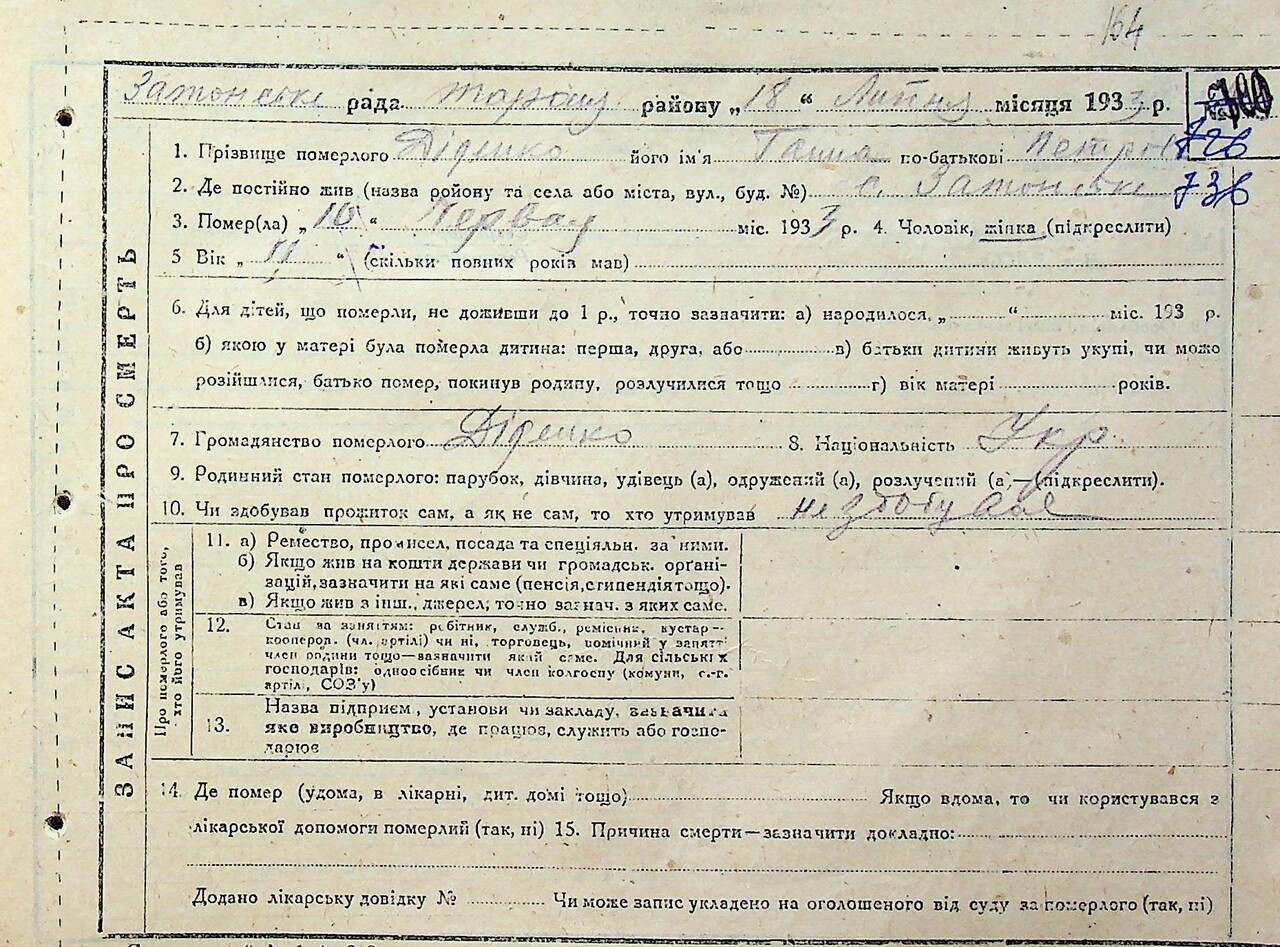 164
Затонське рада Таращ. району „18“ Липня місяця 1933 р.
726
1. Прізвище померлого Діденко його ім'я Ганна по-батькові Петров
2. Де постійно жив (назва району та села або міста, вул., буд. №) с. Затонське 736
3. Помер(ла) „10“ Червня міс. 1933 р. 4. Чоловік, жінка (підкреслити)
5 Вік „11“ (скільки повних років мав)
6. Для дітей, що померли, не доживши до 1 р., точно зазначити: а) народилося „ “ міс. 193 р.
б) якою у матері була померла дитина: перша, друга, або в) батьки дитини живуть укупі, чи може
розійшлися, батько помер, покинув родину, розлучилися тощо г) вік матері років.
7. Громадянство померлого Діденко 8. Національність Укр.
9. Родинний стан померлого: парубок, дівчина, удівець (а), одружений (а), розлучений (а)—(підкреслити).
10. Чи здобував прожиток сам, а як не сам, то хто утримував не здобувала
ЗАПИС АКТА ПРО СМЕРТЬ
Про померлого або того,
хто його утримував
11. а) Ремество, промисел, посада та спеціяльн. за ними.
б) Якщо жив на кошти держави чи громадськ. орґані-
зацій, зазначити на які саме (пенсія, стипендія тощо).
в) Якщо жив з інш., джерел, точно зазнач. з яких саме.
12. Стан за заняттям: робітник, служб., ремісник, кустар—
кооперов. (чл. артілі) чи ні, торговець, помічний у занятті
член родини тощо—вазначити який саме. Для сільських
господарів: одноосібник чи член колгоспу (комуни, с.-г.
артілі, СОЗ'у)
13. Назва підприєм., установи чи закладу, зазначити
яке виробництво, де працює, служить або госпо-
дарює
14. Де помер (удома, в лікарні, дит. домі тощо) Якщо вдома, то чи користувався з
лікарської допомоги померлий (так, ні) 15. Причина смерти—зазначити докладно:
Додано лікарську довідку № Чи може запис укладено на оголошеного від суду за померлого (так, ні)